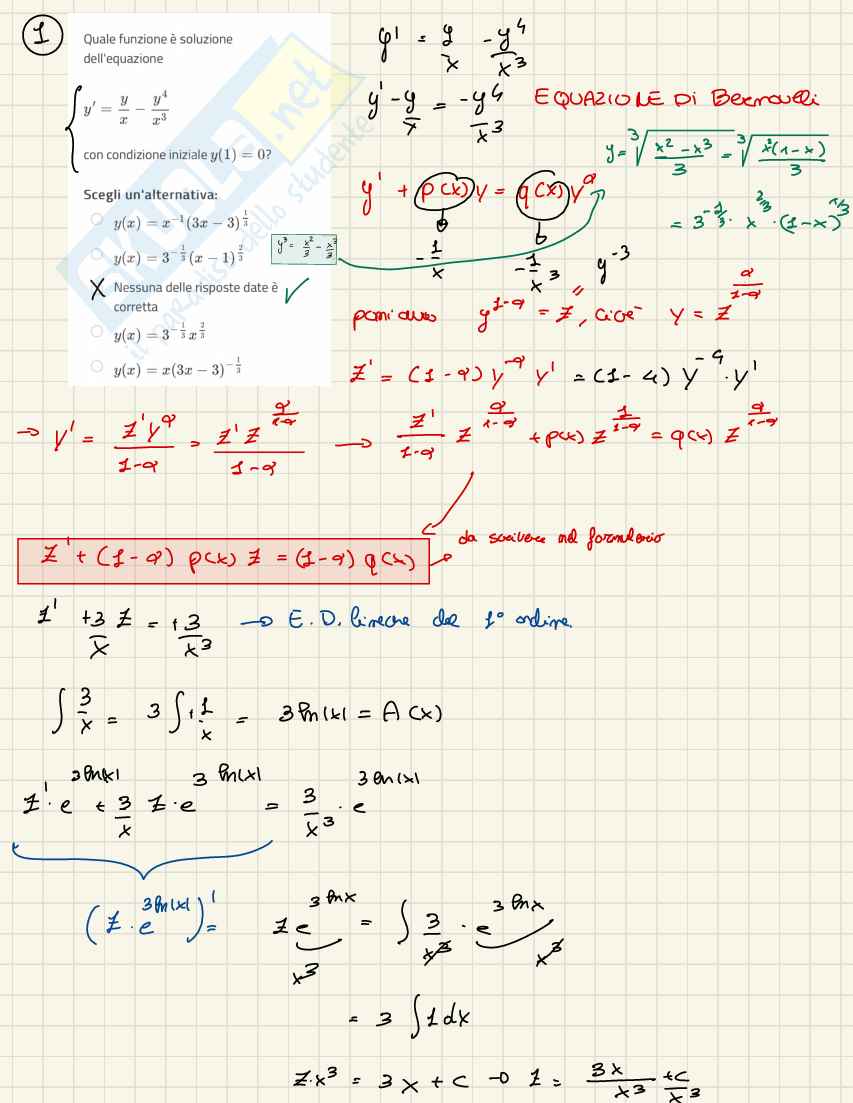 1
Quale funzione è soluzione
dell'equazione
y' = y/x − y⁴/x³
con condizione iniziale y(1) = 0?
Scegli un'alternativa:
y(x) = x⁻¹(3x − 3)^(1/3)
y(x) = 3^(−1/3)(x − 1)^(2/3)
X Nessuna delle risposte date è ✓
corretta
y(x) = 3^(−1/3) x^(2/3)
y(x) = x(3x − 3)^(−1/3)
y' = y/x − y⁴/x³
y' − y/x = −y⁴/x³ EQUAZIONE DI Bernoulli
y = ∛((x² − x³)/3) = ∛(x²(1−x)/3)
= 3^(−1/3) · x^(2/3) · (1−x)^(1/3)
y' + p(x) y = q(x) y^α
−1/x −1/x³ y⁻³
poniamo y^(1−α) = z, cioè y = z^(α/(1−α))
z' = (1−α) y^(−α) y' = (1−4) y⁻⁴ · y'
→ y' = z' y^α/(1−α) = z' z^(α/(1−α))/(1−α) → z'/(1−α) z^(α/(1−α)) + p(x) z^(1/(1−α)) = q(x) z^(α/(1−α))
da scrivere nel formulario
z' + (1−α) p(x) z = (1−α) q(x)
z' + 3/x z = +3/x³ → E.D. lineare del 1° ordine
∫ 3/x = 3 ∫ +1/x = 3 ln|x| = A(x)
z' · e^(3 ln|x|) + 3/x z · e^(3 ln|x|) = 3/x³ · e^(3 ln|x|)
(z · e^(3 ln|x|))' = z e^(3 ln x) = ∫ 3/x³ · e^(3 ln x)
x³ x³
= 3 ∫ 1 dx
z·x³ = 3x + c → z = 3x/x³ + c/x³